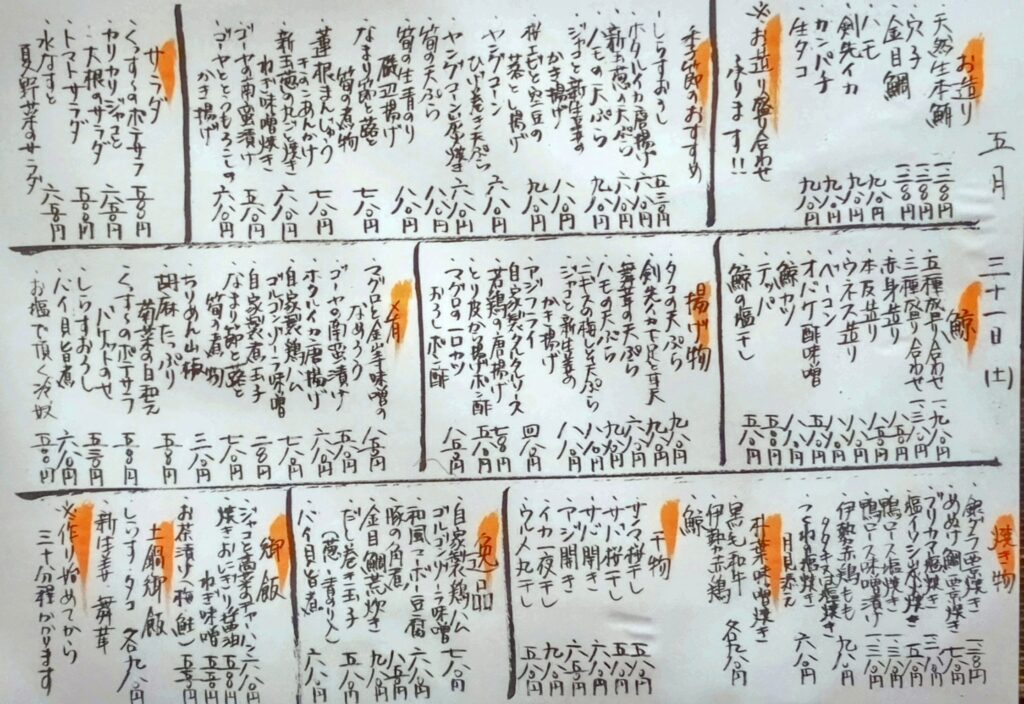 五月 三十一日 (土)
お造り
・天然生本鮪 一二八〇円
・穴子 一二八〇円
・金目鯛 一二八〇円
・ハモ 九八〇円
・剣先イカ 九八〇円
・カンパチ 九八〇円
・生タコ 九八〇円
※お造り盛り合わせ
ル有ります!!
季節のおすすめ
・しらすおろし 五三〇円
・ホタルイカ唐揚げ 六八〇円
・新玉葱の天ぷら 六八〇円
・ハモの天ぷら 九八〇円
・ジャコと新生姜の
かき揚げ 八八〇円
・桜玉と空豆の
落とし揚げ 九八〇円
・ヤングコーン
ひげ巻き天ぷら 六八〇円
・ヤングコーン炭火焼き 六八〇円
・筍の天ぷら 八八〇円
・筍の生青のり
磯辺揚げ 八八〇円
・なまり節と蕗と
筍の煮物 七八〇円
・蓮根まんじゅう
きのこあんかけ 七八〇円
・新玉葱の丸ごと焼き
ねぎ味噌焼き 六八〇円
・ゴーヤの南蛮漬け 五八〇円
・ゴーヤととうもろこしの
かき揚げ 六八〇円
サラダ
・くんすうのポテサラ 五八〇円
・カリカリジャコと
大根のサラダ 六八〇円
・トマトサラダ 五八〇円
・水なすと
夏野菜のサラダ 六八〇円
鯨
・五種盛り合わせ 一九八〇円
・三種盛り合わせ 一三八〇円
・赤身造り
・本皮造り
・ウネス造り
・ベーコン
・オバケ酢味噌
・鯨カツ
・テッパ
・鯨の塩干し
揚げ物
・タコの天ぷら 九八〇円
・剣先イカ下足と耳天 九八〇円
・舞茸の天ぷら 六八〇円
・ハモの天ぷら 九八〇円
・ニギスの梅しそ天ぷら
・ジャコと新生姜の
かき揚げ 八八〇円
・アジフライ
自家製タルタルソース
・若鶏の唐揚げ 七八〇円
・とり皮から揚げポン酢 五八〇円
・マグロの一口カツ
おろしポン酢 八五〇円
※肴
・マグロと金山寺味噌の
なめろう 八五〇円
・ゴーヤの南蛮漬け 五八〇円
・ホタルイカ唐揚げ 六八〇円
・自家製鶏ハム
ゴルゴンゾーラ味噌 七八〇円
・自家製煮玉子 二八〇円
・なまり節と蕗と
筍の煮物 七八〇円
・ちりめん山椒 二八〇円
・胡麻たっぷり
菊菜の白和え 五八〇円
・くんすうのポテサラ
バケットのせ 五八〇円
・しらすおろし 五三〇円
・バイ貝旨煮 六八〇円
・お塩で頂く冷奴 五八〇円
焼き物
・銀ダラ西京焼き 一二八〇円
・めぬけ鯛西京焼き
・ブリカマ塩焼き
・塩イワシ炭火焼き
・鴨ロース塩焼き 一三八〇円
・鴨ロース味噌漬け 一三八〇円
・伊勢赤鶏もも
タタキ風塩焼き 九八〇円
・つくね塩焼き
月見添え 六八〇円
朴葉味噌焼き
・黒毛和牛
・伊勢赤鶏
・鯨 各九八〇円
干物
・サンマ桜干し
・サバ桜干し
・サバ開き
・アジ開き
・イカ一夜干し
・ウルメ丸干し
逸品
・自家製鶏ハム
ゴルゴンゾーラ味噌 七八〇円
・和風マーボー豆腐
・豚の角煮
・金目鯛荒炊き 九八〇円
・だし巻き玉子
(葱 青のり入) 五八〇円
・バイ貝旨煮 六八〇円
御飯
・ジャコと高菜チャーハン 六八〇円
・焼きおにぎり 醤油
ねぎ味噌
・お茶漬け(梅 鮭)
土鍋御飯
・しらす タコ
・新生姜 舞茸 各九八〇円
※作り始めてから
三十分程かかります